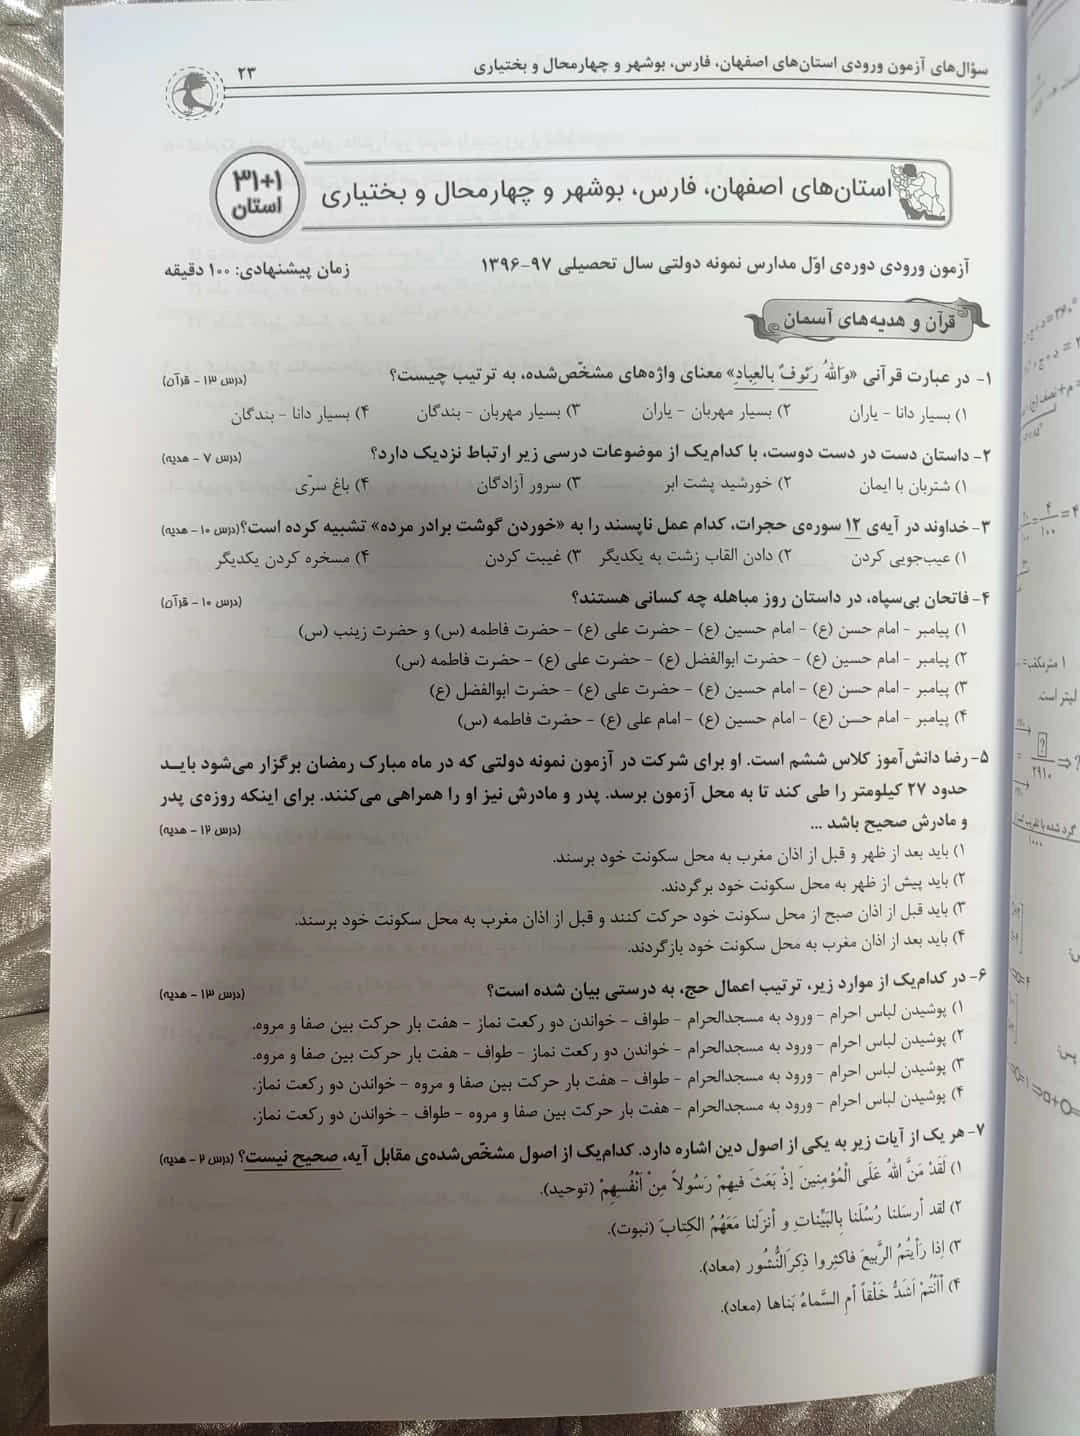 سؤال‌های آزمون ورودی استان‌های اصفهان، فارس، بوشهر و چهارمحال و بختیاری ۲۳
استان‌های اصفهان، فارس، بوشهر و چهارمحال و بختیاری
۳۱+۱
استان
آزمون ورودی دوره‌ی اوّل مدارس نمونه دولتی سال تحصیلی ۹۷-۱۳۹۶ زمان پیشنهادی: ۱۰۰ دقیقه
قرآن و هدیه‌های آسمان
۱- در عبارت قرآنی «وَاللهُ رَئوفٌ بِالعِبادِ» معنای واژه‌های مشخّص‌شده، به ترتیب چیست؟ (درس ۱۳ - قرآن)
۱) بسیار دانا - یاران ۲) بسیار مهربان - یاران ۳) بسیار مهربان - بندگان ۴) بسیار دانا - بندگان
۲- داستان دست در دست دوست، با کدام‌یک از موضوعات درسی زیر ارتباط نزدیک دارد؟ (درس ۷ - هدیه)
۱) شتربان با ایمان ۲) خورشید پشت ابر ۳) سرور آزادگان ۴) باغ سرّی
۳- خداوند در آیه‌ی ۱۲ سوره‌ی حجرات، کدام عمل ناپسند را به «خوردن گوشت برادر مرده» تشبیه کرده است؟ (درس ۱۰ - هدیه)
۱) عیب‌جویی کردن ۲) دادن القاب زشت به یکدیگر ۳) غیبت کردن ۴) مسخره کردن یکدیگر
۴- فاتحان بی‌سپاه، در داستان روز مباهله چه کسانی هستند؟ (درس ۱۰ - قرآن)
۱) پیامبر - امام حسن (ع) - امام حسین (ع) - حضرت علی (ع) - حضرت فاطمه (س) و حضرت زینب (س)
۲) پیامبر - امام حسین (ع) - حضرت ابوالفضل (ع) - حضرت علی (ع) - حضرت فاطمه (س)
۳) پیامبر - امام حسن (ع) - امام حسین (ع) - حضرت علی (ع) - حضرت ابوالفضل (ع)
۴) پیامبر - امام حسن (ع) - امام حسین (ع) - امام علی (ع) - حضرت فاطمه (س)
۵- رضا دانش‌آموز کلاس ششم است. او برای شرکت در آزمون نمونه دولتی که در ماه مبارک رمضان برگزار می‌شود باید
حدود ۲۷ کیلومتر را طی کند تا به محل آزمون برسد. پدر و مادرش نیز او را همراهی می‌کنند. برای اینکه روزه‌ی پدر
و مادرش صحیح باشد ... (درس ۱۲ - هدیه)
۱) باید بعد از ظهر و قبل از اذان مغرب به محل سکونت خود برسند.
۲) باید پیش از ظهر به محل سکونت خود برگردند.
۳) باید قبل از اذان صبح از محل سکونت خود حرکت کنند و قبل از اذان مغرب به محل سکونت خود برسند.
۴) باید بعد از اذان مغرب به محل سکونت خود بازگردند.
۶- در کدام‌یک از موارد زیر، ترتیب اعمال حج، به درستی بیان شده است؟ (درس ۱۳ - هدیه)
۱) پوشیدن لباس احرام - ورود به مسجدالحرام - طواف - خواندن دو رکعت نماز - هفت بار حرکت بین صفا و مروه.
۲) پوشیدن لباس احرام - ورود به مسجدالحرام - خواندن دو رکعت نماز - طواف - هفت بار حرکت بین صفا و مروه.
۳) پوشیدن لباس احرام - ورود به مسجدالحرام - طواف - هفت بار حرکت بین صفا و مروه - خواندن دو رکعت نماز.
۴) پوشیدن لباس احرام - ورود به مسجدالحرام - هفت بار حرکت بین صفا و مروه - طواف - خواندن دو رکعت نماز.
۷- هر یک از آیات زیر به یکی از اصول دین اشاره دارد. کدام‌یک از اصول مشخّص‌شده‌ی مقابل آیه، صحیح نیست؟ (درس ۲ - هدیه)
۱) لَقَدْ مَنَّ اللهُ عَلَی الْمُؤمِنینَ إذْ بَعَثَ فیهِمْ رَسُولاً مِنْ اَنْفُسِهِمْ (توحید).
۲) لقد أرسَلنا رُسُلَنا بِالبَیِّناتِ و أنزَلنا مَعَهُمُ الکِتابَ (نبوت).
۳) اِذا رَأیتُمُ الرَّبیعَ فاکثِروا ذِکرَالنُّشُور (معاد).
۴) أاَنْتُمْ اَشَدُّ خَلْقاً أمِ السَّماءُ بَناها (معاد).